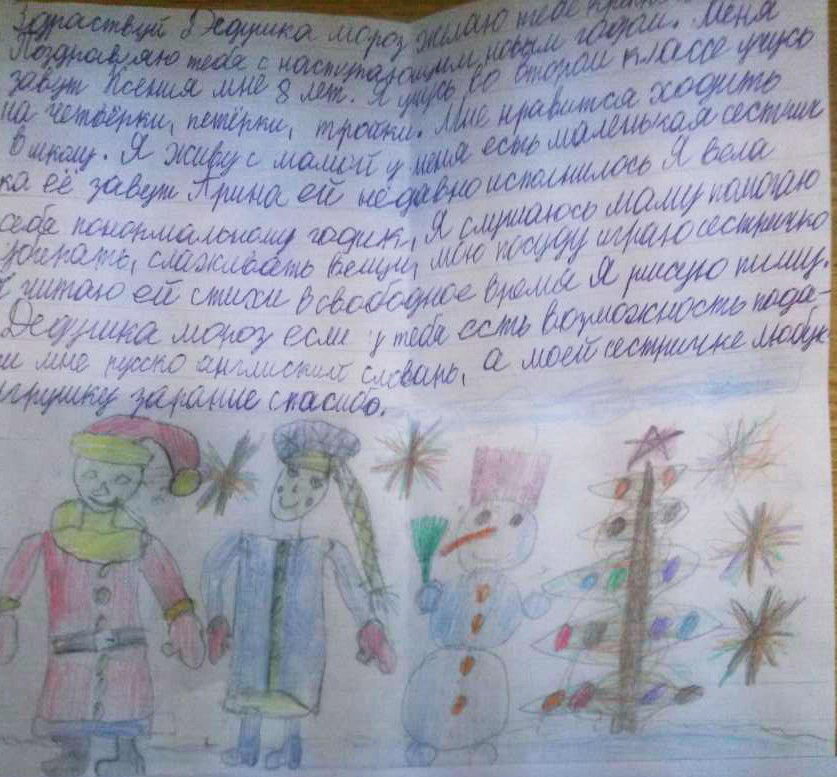 Здраствуй Дедушка мороз желаю тебе
Поздравляю тебя с наступающим, новым годом. Меня
завут Ксения мне 8 лет. Я учусь во втором классе учусь
на четвёрки, петёрки, тройки. Мне нравится ходить
в школу. Я живу с мамой у меня есть маленькая сестрич
ка её завут Арина ей недавно исполнилось Я вела
себя понормальному годик, Я слушаюсь маму помогаю
убирать, слаживать вещи, мою посуду играю сестричко
читаю ей стихи в свободное время Я рисую пишу.
Дедушка мороз если у тебя есть возможность пода-
и мне русско английский словарь, а моей сестричке любую
игрушку зарание спасибо.